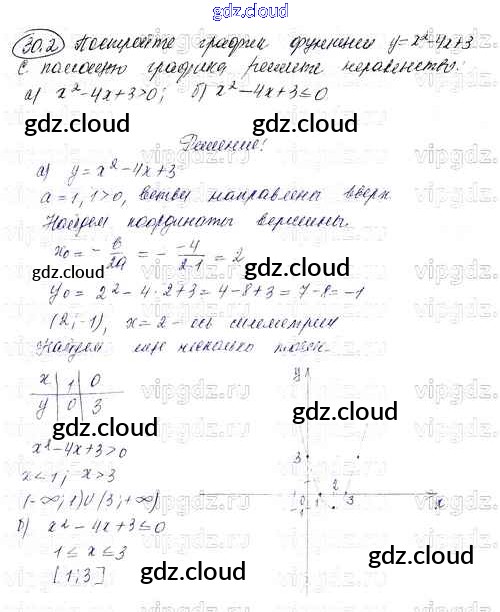 gdz.cloud
30.2 Постройте график функции y=x²-4x+3
С помощью графика решите неравенство:
а) x²-4x+3>0; б) x²-4x+3≤0
gdz.cloud gdz.cloud
Решение:
а) y=x²-4x+3
gdz.cloud gdz.cloud
a=1, 1>0, ветви направлены вверх
Найдем координаты вершины.
x₀ = - b/2a = - -4/2·1 = 2
gdz.cloud gdz.cloud
y₀ = 2²-4·2+3=4-8+3=7-8=-1
(2;-1), x=2 - ось симметрии
gdz.cloud gdz.cloud
Найдем еще несколько точек.
x | 1 | 0
y | 0 | 3
gdz.cloud gdz.cloud
x²-4x+3>0
x<1; x>3
(-∞;1)∪(3;+∞)
gdz.cloud gdz.cloud
б) x²-4x+3≤0
1≤x≤3
[1;3]
gdz.cloud gdz.cloud
y
3
1
0 1 2 3 x